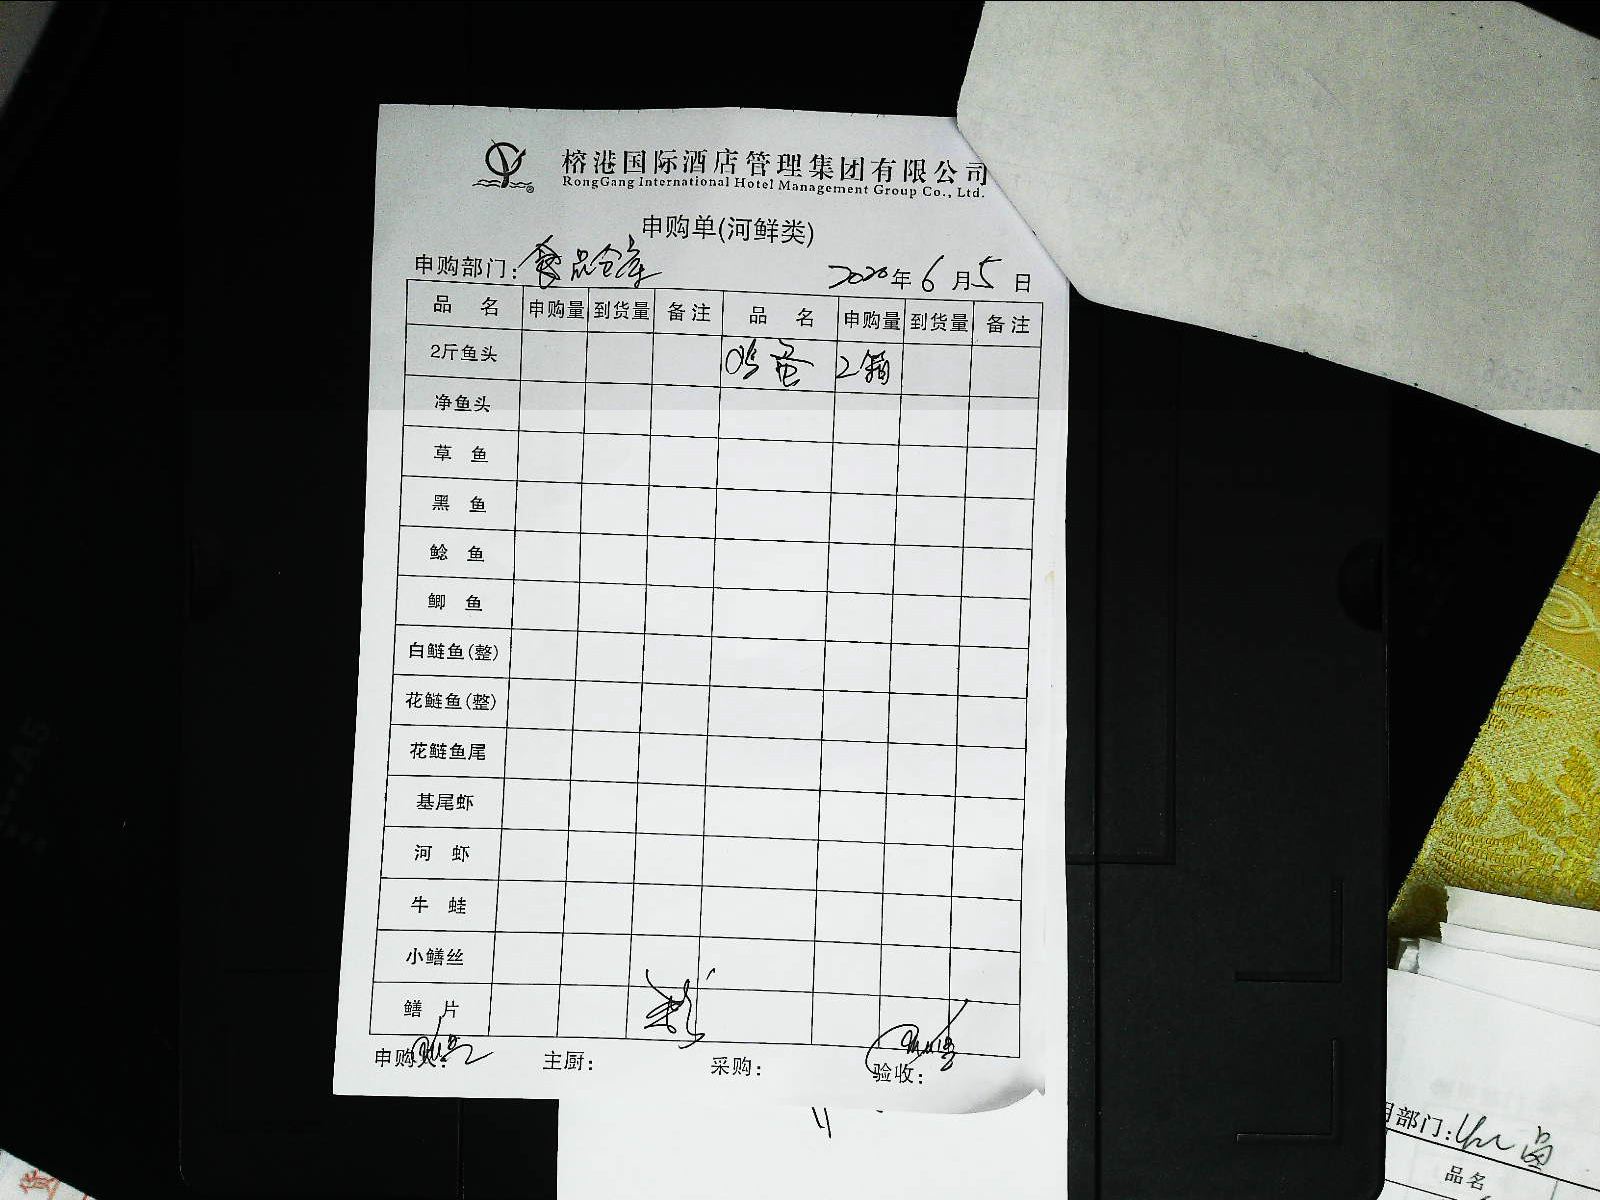 榕港国际酒店管理集团有限公司
RongGang International Hotel Management Group Co., Ltd.
申购单(河鲜类)
申购部门: 食品仓库 2020年6月5日
品名 申购量 到货量 备注 品名 申购量 到货量 备注
2斤鱼头 鸡蛋 2箱
净鱼头
草鱼
黑鱼
鲶鱼
鲫鱼
白鲢鱼(整)
花鲢鱼(整)
花鲢鱼尾
基尾虾
河虾
牛蛙
小鳝丝
鳝片
申购人: 主厨: 采购: 验收:
部门:
品名